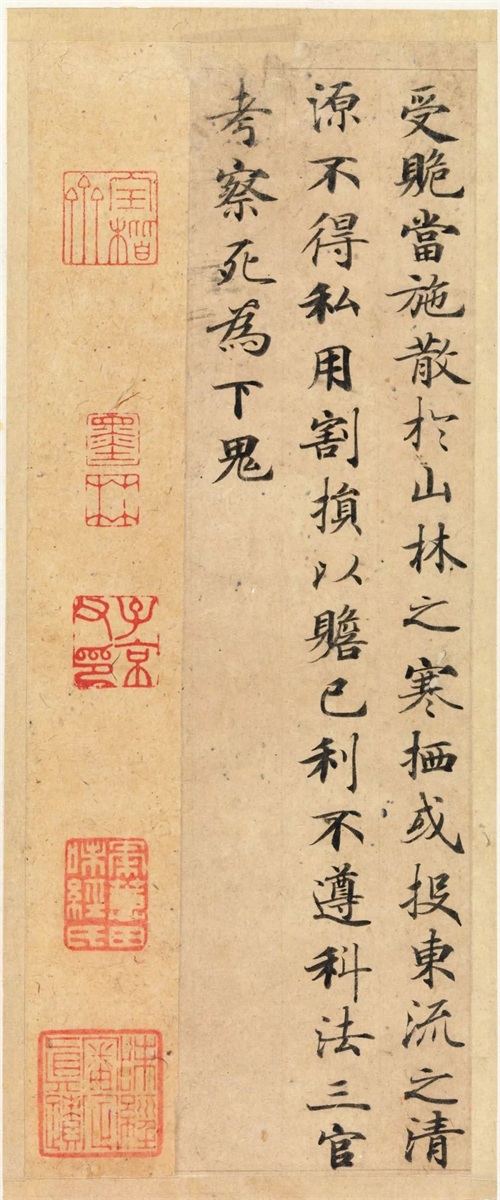 受當施散於山林之寒栖或投東流之清
源不得私用割損以贍己利不遵科法三官
考察死為下鬼
墨林
子京父印